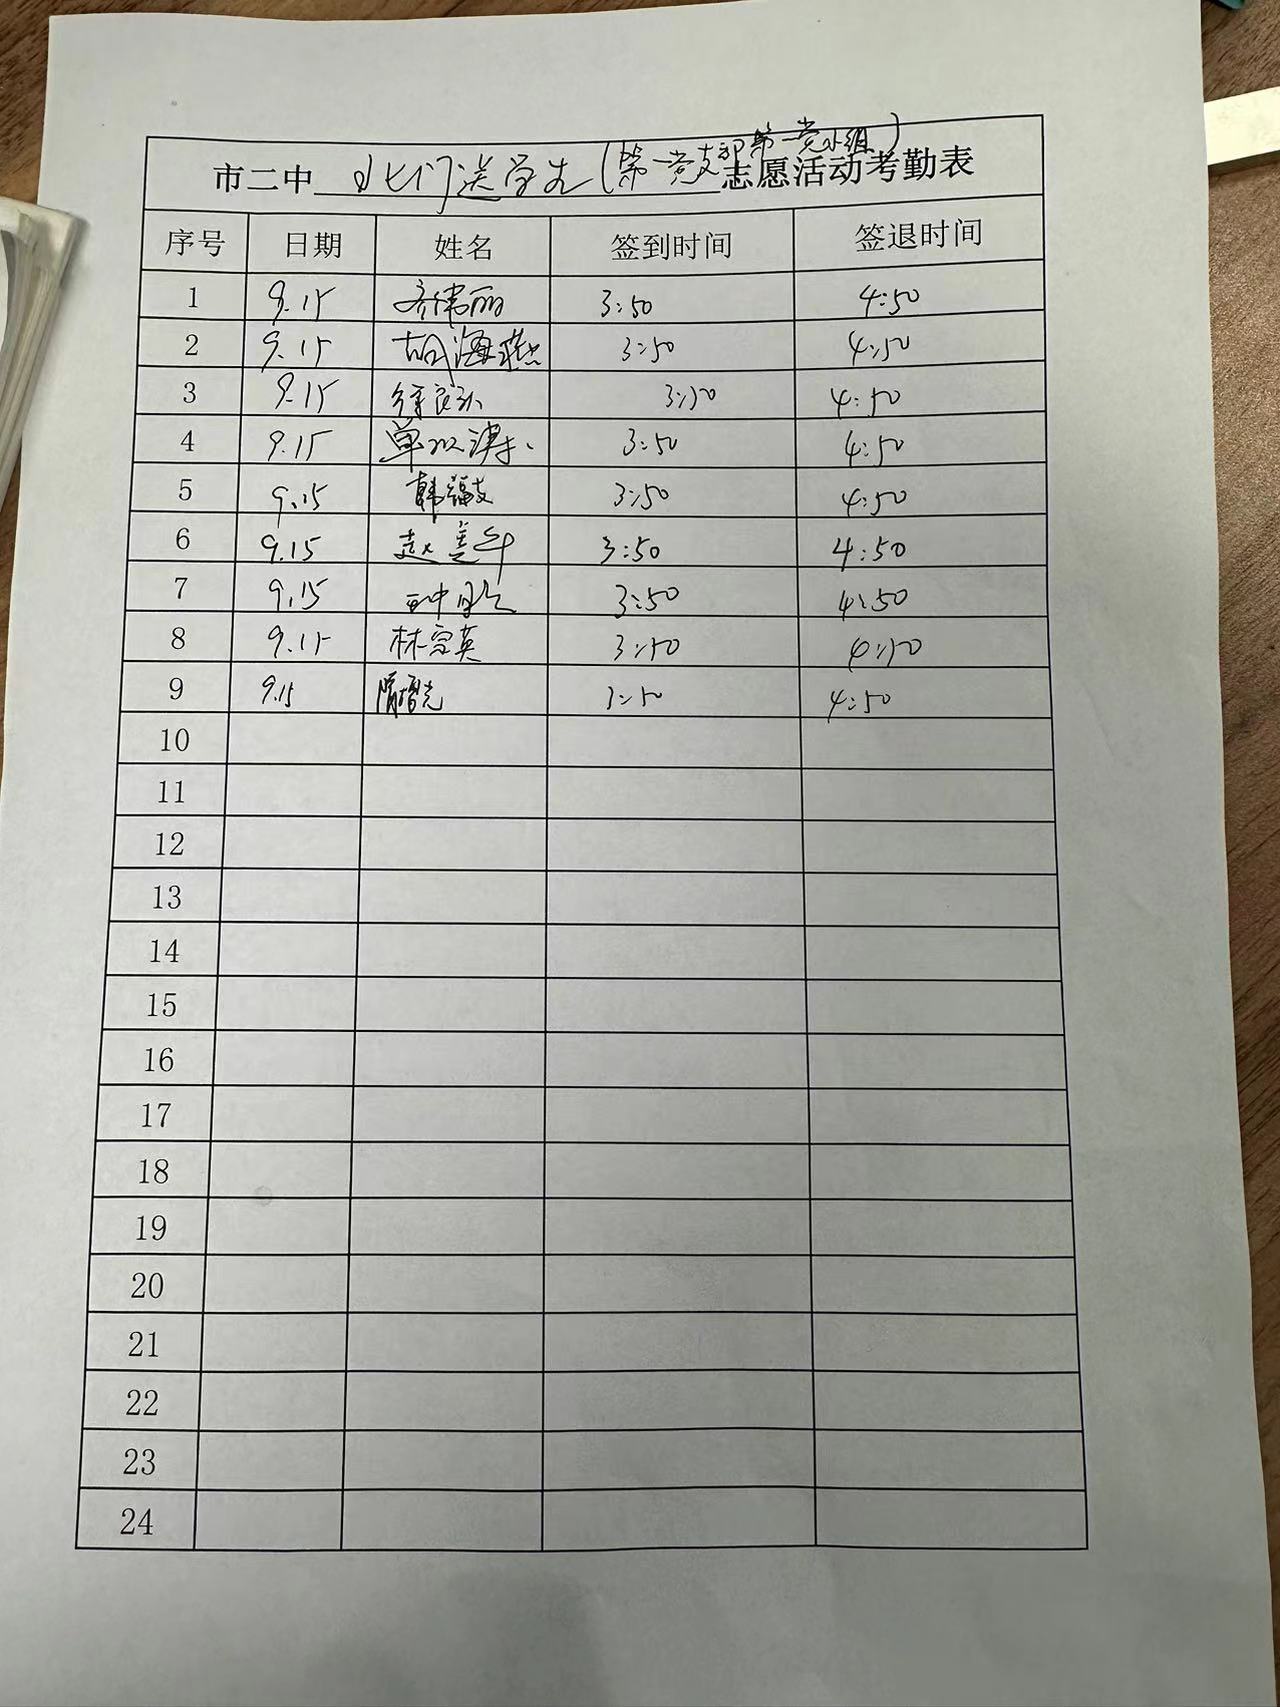 市二中 北门送学生(第一党支部第一党小组) 志愿活动考勤表
序号 日期 姓名 签到时间 签退时间
1 9.15 齐伟丽 3:50 4:50
2 9.15 胡海燕 3:50 4:50
3 9.15 3:50 4:50
4 9.15 单 3:50 4:50
5 9.15 韩 3:50 4:50
6 9.15 赵 3:50 4:50
7 9.15 3:50 4:50
8 9.15 林 英 3:50 4:50
9 9.15 隋 3:50 4:50
10
11
12
13
14
15
16
17
18
19
20
21
22
23
24